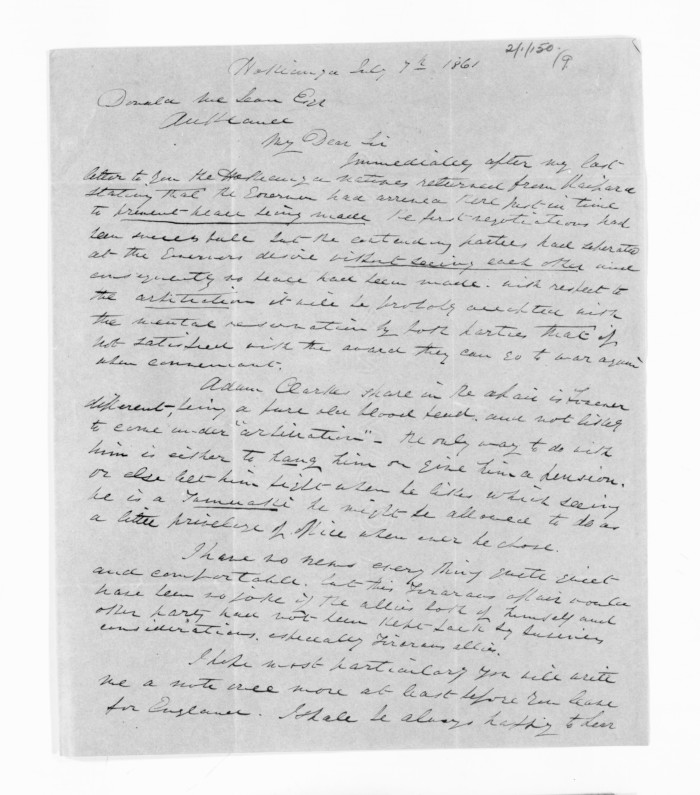 2/1/150/9
Hokianga July 7th 1861
Donald McLean Esq
Auckland
My Dear Sir
Immediately after my last
letter to you the Hokianga natives returned from Kaipara
stating that the Governor had arrived there just in time
to prevent peace being made the first negotiations had
been successfull but the contending parties had seperated
at the Governors desire without seeing each other and
consequently no peace had been made. with respect to
the arbitration it will be probably accepted with
the mental reservation by both parties that if
not satisfied with the award they can go to war again
when convenient.
Adam Clarkes share in the afair is
different, being a pure old blood feud and not likely
to come under "arbitration" - the only way to do with
him is either to hang him or give him a pension.
or else let him fight when he likes which seeing
he is a he might be allowed to do as
a little priveledge of office when ever he chose.
I have no news every thing quite quiet
and comfortable. but this afair would
have been no joke if the allies both of himself and
other party had not been kept back by
considerations, especially allies.
I hope most particularly you will write
me a note once more at least before you leave
for England. I shall be always happy to hear